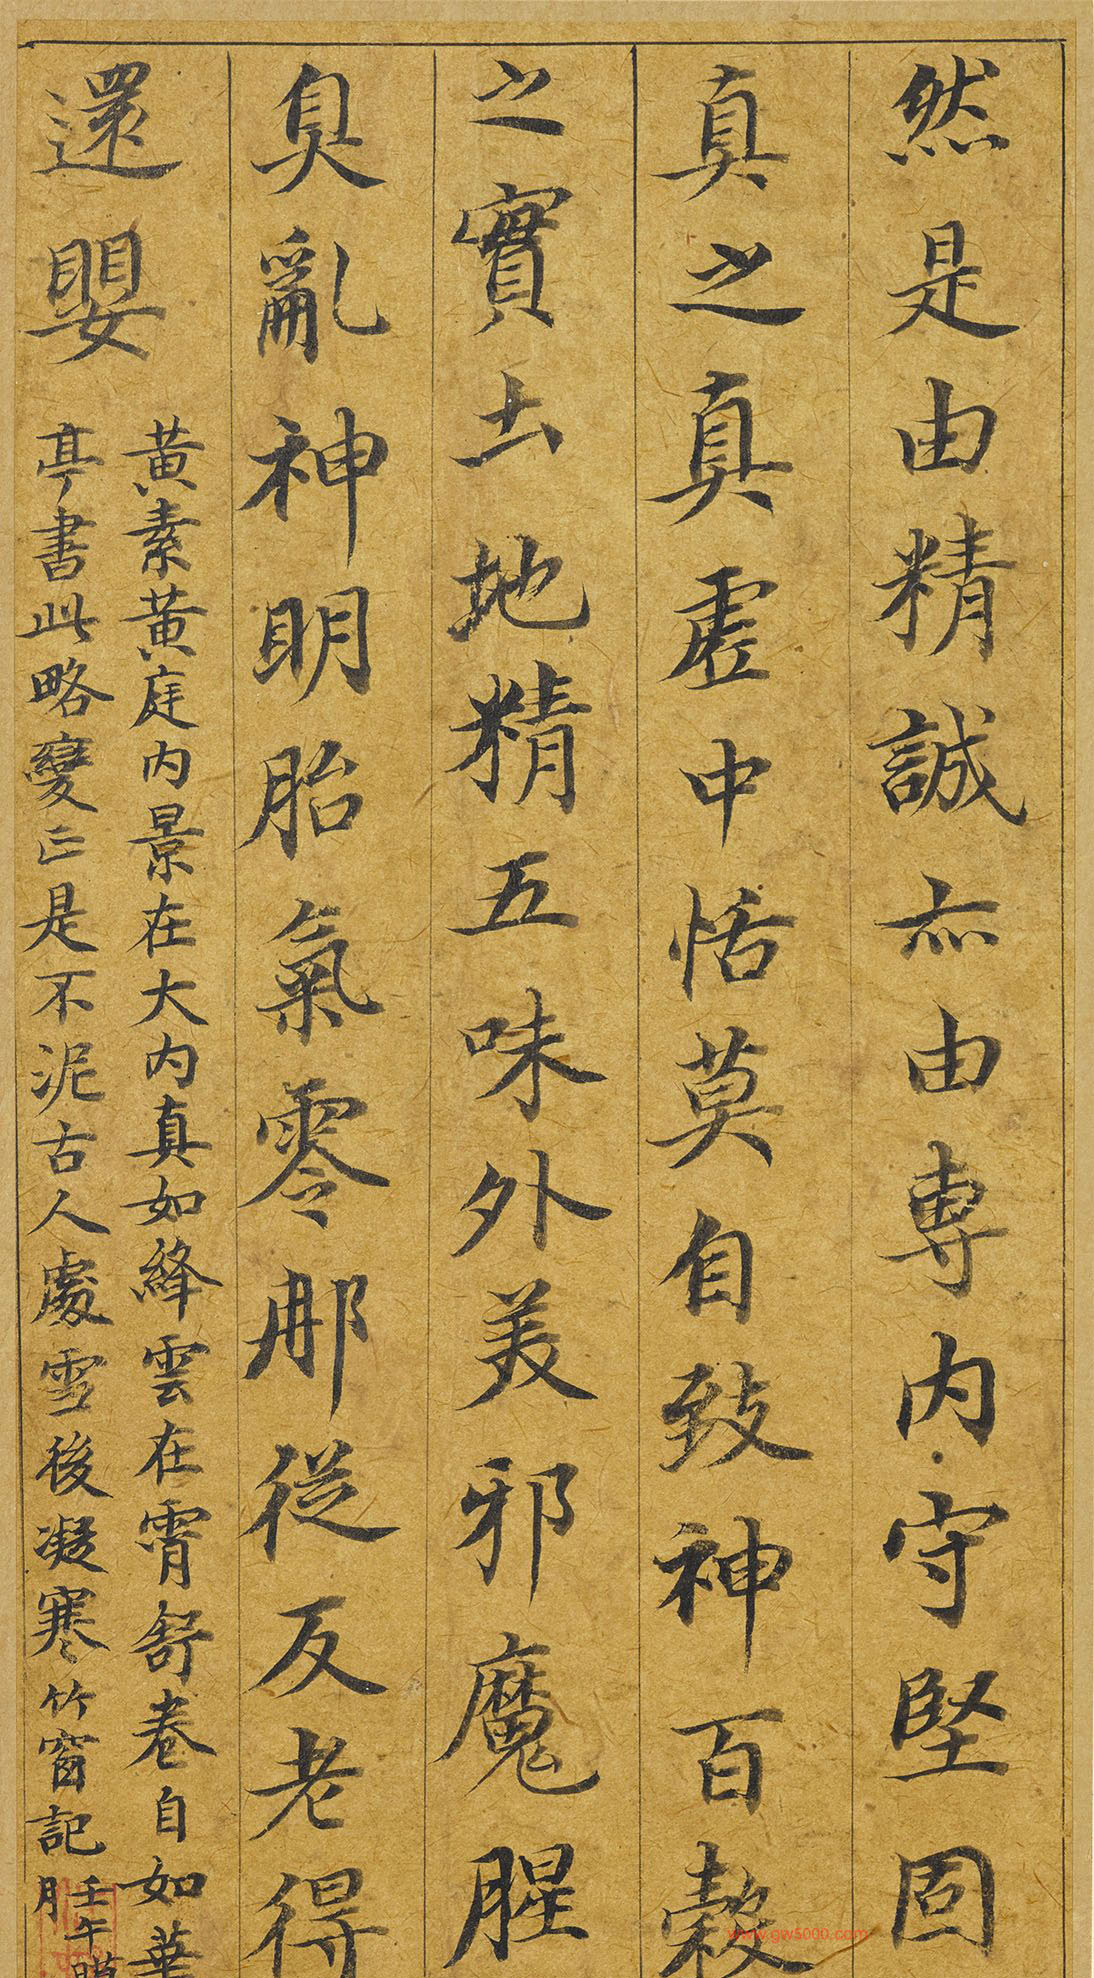 然是由精誠亦由專内守堅固
真之真虛中恬莫自致神百穀
之實土地精五味外美邪魔腥
臭亂神明胎氣零那從反老得
還嬰
黄素黄庭内景在大内真如絳雲在霄舒卷自如華
亭書此略變正是不泥古人處雪後凝寒竹窗記
壬午臘
月
www.gw5000.com